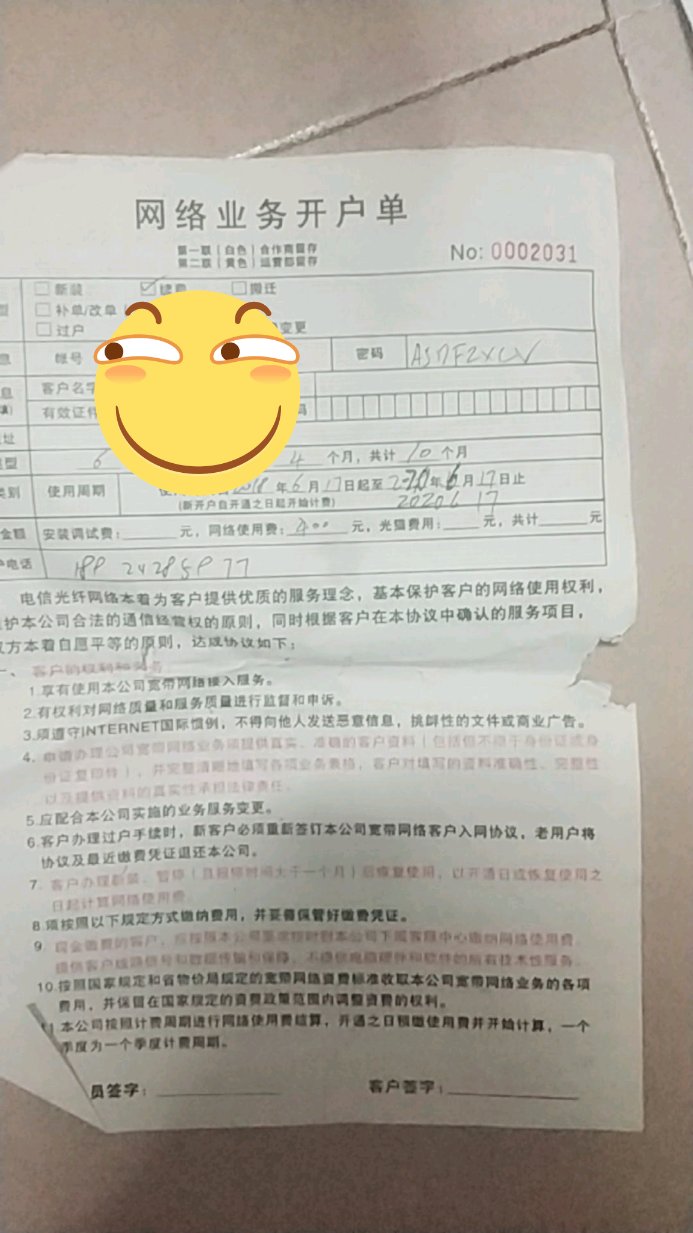 网络业务开户单
第一联(白色)合作商留存
第二联(黄色)运营部留存
No: 0002031
新装 续费 搬迁
补单/改单
过户 变更
帐号 密码 ASDFZXCV
客户名字
有效证件
6 4 个月,共计 10 个月
使用周期 2018 年 6 月 17 日起至 2020 年 6 月 17 日止
(新开户自开通之日起开始计费) 2020 6 17
金额 安装调试费: 元,网络使用费: 400 元,光猫费用: 元,共计 元
电话
电信光纤网络本着为客户提供优质的服务理念,基本保护客户的网络使用权利,
护本公司合法的通信经营权的原则,同时根据客户在本协议中确认的服务项目,
双方本着自愿平等的原则,达成协议如下:
一、客户的权利和义务:
1.享有使用本公司宽带网络接入服务。
2.有权利对网络质量和服务质量进行监督和申诉。
3.须遵守INTERNET国际惯例,不得向他人发送恶意信息,挑衅性的文件或商业广告。
4.申请办理公司宽带网络业务须提供真实、准确的客户资料(包括但不限于身份证或身
份证复印件),并完整清晰地填写各项业务表格,客户对填写的资料准确性、完整性
以及提供资料的真实性承担法律责任。
5.应配合本公司实施的业务服务变更。
6.客户办理过户手续时,新客户必须重新签订本公司宽带网络客户入网协议,老用户将
协议及最近缴费凭证退还本公司。
7.客户办理新装、暂停(且报停时间大于一个月)后恢复使用,以开通日或恢复使用之
日起计算网络使用费。
8.须按照以下规定方式缴纳费用,并妥善保管好缴费凭证。
9.现金缴费的客户,应按照本公司要求按时到本公司下属客服中心缴纳网络使用费,
提供客户线路信号和数据传输和保障,不提供电脑硬件和软件的所有技术性服务。
10.按照国家规定和省物价局规定的宽带网络资费标准收取本公司宽带网络业务的各项
费用,并保留在国家规定的资费政策范围内调整资费的权利。
11.本公司按照计费周期进行网络使用费结算,开通之日预缴使用费并开始计算,一个
季度为一个季度计费周期。
员签字: 客户签字: